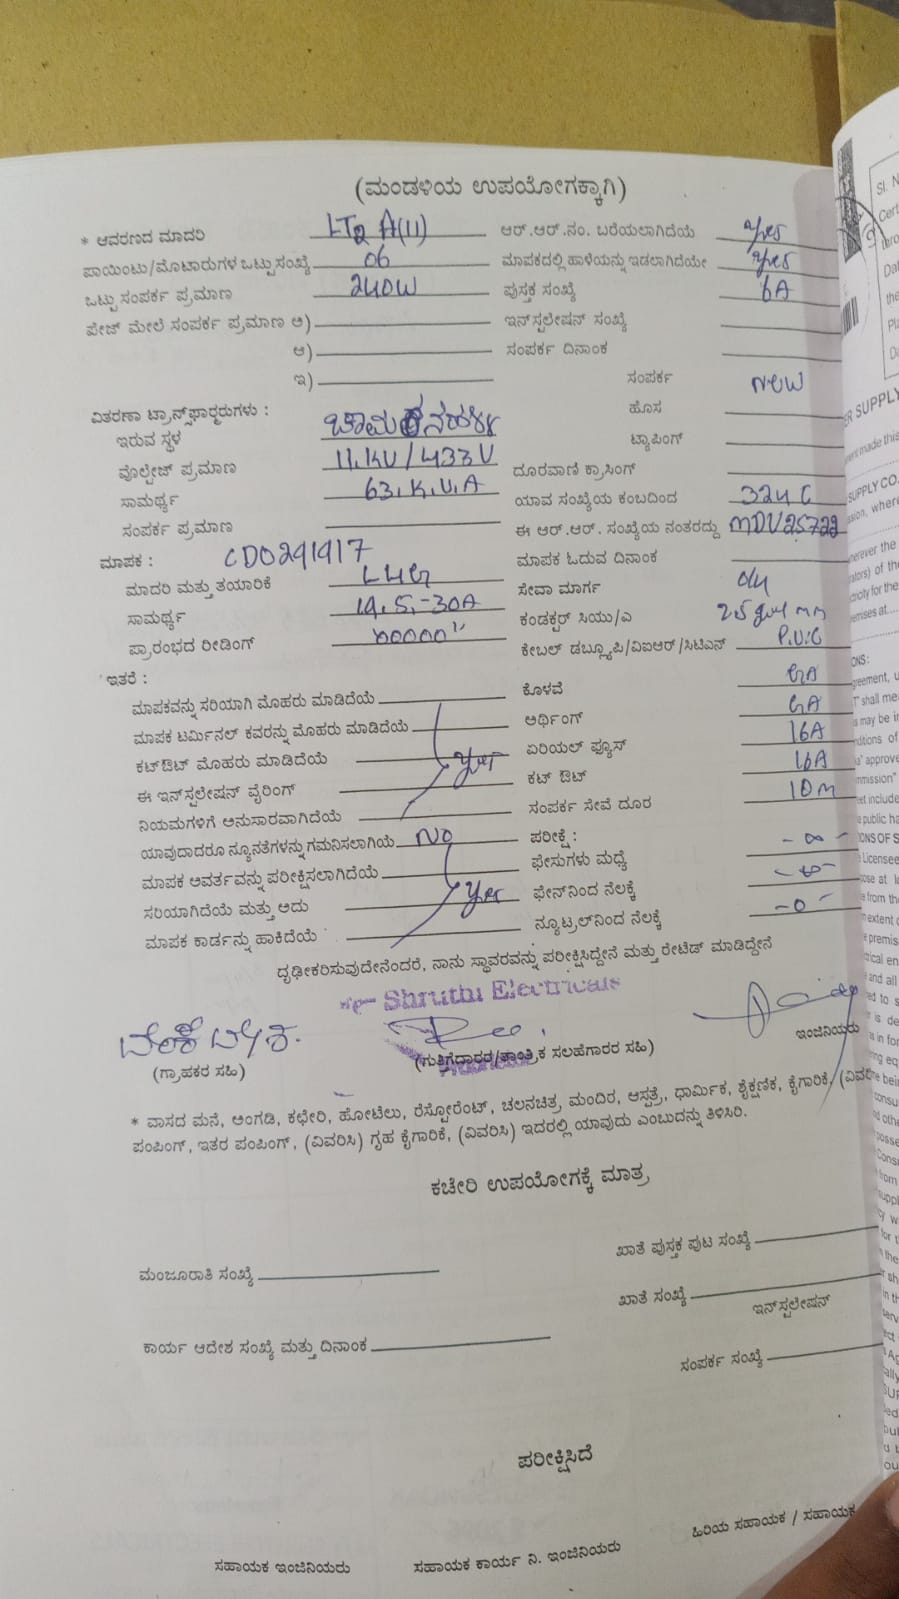 (ಮಂಡಳಿಯ ಉಪಯೋಗಕ್ಕಾಗಿ)
* ಆವರಣದ ಮಾದರಿ LT2 A(11) ಆರ್.ಆರ್.ನಂ. ಬರೆಯಲಾಗಿದೆಯೆ yes
ಪಾಯಿಂಟು/ಮೊಟಾರುಗಳ ಒಟ್ಟು ಸಂಖ್ಯೆ 06 ಮಾಪಕದಲ್ಲಿ ಹಾಳೆಯನ್ನು ಇಡಲಾಗಿದೆಯೇ yes
ಒಟ್ಟು ಸಂಪರ್ಕ ಪ್ರಮಾಣ 240W ಪುಸ್ತಕ ಸಂಖ್ಯೆ 6A
ಪೇಜ್ ಮೇಲೆ ಸಂಪರ್ಕ ಪ್ರಮಾಣ ಅ) ಇನ್‌ಸ್ಟಲೇಷನ್ ಸಂಖ್ಯೆ
ಆ) ಸಂಪರ್ಕ ದಿನಾಂಕ
ಇ) ಸಂಪರ್ಕ New
ವಿತರಣಾ ಟ್ರಾನ್ಸ್‌ಫಾರ್ಮರುಗಳು : ಹೊಸ
ಇರುವ ಸ್ಥಳ ಟ್ಯಾಪಿಂಗ್
ವೊಲ್ಟೇಜ್ ಪ್ರಮಾಣ 11.KV/433V ದೂರವಾಣಿ ಕ್ರಾಸಿಂಗ್
ಸಾಮರ್ಥ್ಯ 63.K.V.A ಯಾವ ಸಂಖ್ಯೆಯ ಕಂಬದಿಂದ 324C
ಸಂಪರ್ಕ ಪ್ರಮಾಣ ಈ ಆರ್.ಆರ್. ಸಂಖ್ಯೆಯ ನಂತರದ್ದು MDV25722
ಮಾಪಕ : CD0291917 ಮಾಪಕ ಓದುವ ದಿನಾಂಕ
ಮಾದರಿ ಮತ್ತು ತಯಾರಿಕೆ L&G ಸೇವಾ ಮಾರ್ಗ o/h
ಸಾಮರ್ಥ್ಯ 19.5-30A ಕಂಡಕ್ಟರ್ ಸಿಯು/ಎ
ಪ್ರಾರಂಭದ ರೀಡಿಂಗ್ 00000 ಕೇಬಲ್ ಡಬ್ಲ್ಯೂಪಿ/ವಿಐಆರ್/ಸಿಟಿಎನ್ P.V.C
ಇತರೆ :
ಮಾಪಕವನ್ನು ಸರಿಯಾಗಿ ಮೊಹರು ಮಾಡಿದೆಯೆ ಕೊಳವೆ GA
ಮಾಪಕ ಟರ್ಮಿನಲ್ ಕವರನ್ನು ಮೊಹರು ಮಾಡಿದೆಯೆ ಅರ್ಥಿಂಗ್ GA
ಕಟ್‌ಔಟ್ ಮೊಹರು ಮಾಡಿದೆಯೆ Yes ಏರಿಯಲ್ ಫ್ಯೂಸ್ 16A
ಈ ಇನ್‌ಸ್ಟಲೇಷನ್ ವೈರಿಂಗ್ ಕಟ್ ಔಟ್ 16A
ನಿಯಮಗಳಿಗೆ ಅನುಸಾರವಾಗಿದೆಯೆ ಸಂಪರ್ಕ ಸೇವೆ ದೂರ 10m
ಯಾವುದಾದರೂ ನ್ಯೂನತೆಗಳನ್ನು ಗಮನಿಸಲಾಗಿಯೆ No ಪರೀಕ್ಷೆ :
ಮಾಪಕ ಆವರ್ತವನ್ನು ಪರೀಕ್ಷಿಸಲಾಗಿದೆಯೆ ಫೇಸುಗಳು ಮಧ್ಯೆ
ಸರಿಯಾಗಿದೆಯೆ ಮತ್ತು ಅದು Yes ಫೇನ್‌ನಿಂದ ನೆಲಕ್ಕೆ
ಮಾಪಕ ಕಾರ್ಡನ್ನು ಹಾಕಿದೆಯೆ ನ್ಯೂಟ್ರಲ್‌ನಿಂದ ನೆಲಕ್ಕೆ -0-
ದೃಢೀಕರಿಸುವುದೇನೆಂದರೆ, ನಾನು ಸ್ಥಾವರವನ್ನು ಪರೀಕ್ಷಿಸಿದ್ದೇನೆ ಮತ್ತು ರೇಟಿಡ್ ಮಾಡಿದ್ದೇನೆ
Shruthi Electricals
ವೆಂಕಟೇಶ.
(ಗ್ರಾಹಕರ ಸಹಿ) (ಗುತ್ತಿಗೆದಾರರ/ತಾಂತ್ರಿಕ ಸಲಹೆಗಾರರ ಸಹಿ) ಇಂಜಿನಿಯರು
* ವಾಸದ ಮನೆ, ಅಂಗಡಿ, ಕಛೇರಿ, ಹೋಟೆಲು, ರೆಸ್ಟೋರೆಂಟ್, ಚಲನಚಿತ್ರ ಮಂದಿರ, ಆಸ್ಪತ್ರೆ, ಧಾರ್ಮಿಕ, ಶೈಕ್ಷಣಿಕ, ಕೈಗಾರಿಕೆ,
ಪಂಪಿಂಗ್, ಇತರ ಪಂಪಿಂಗ್, (ವಿವರಿಸಿ) ಗೃಹ ಕೈಗಾರಿಕೆ, (ವಿವರಿಸಿ) ಇದರಲ್ಲಿ ಯಾವುದು ಎಂಬುದನ್ನು ತಿಳಿಸಿರಿ.
ಕಚೇರಿ ಉಪಯೋಗಕ್ಕೆ ಮಾತ್ರ
ಮಂಜೂರಾತಿ ಸಂಖ್ಯೆ ಖಾತೆ ಪುಸ್ತಕ ಪುಟ ಸಂಖ್ಯೆ
ಖಾತೆ ಸಂಖ್ಯೆ
ಇನ್‌ಸ್ಟಲೇಷನ್
ಕಾರ್ಯ ಆದೇಶ ಸಂಖ್ಯೆ ಮತ್ತು ದಿನಾಂಕ ಸಂಪರ್ಕ ಸಂಖ್ಯೆ
ಪರೀಕ್ಷಿಸಿದೆ
ಸಹಾಯಕ ಇಂಜಿನಿಯರು ಸಹಾಯಕ ಕಾರ್ಯ ನಿ. ಇಂಜಿನಿಯರು ಹಿರಿಯ ಸಹಾಯಕ / ಸಹಾಯಕ